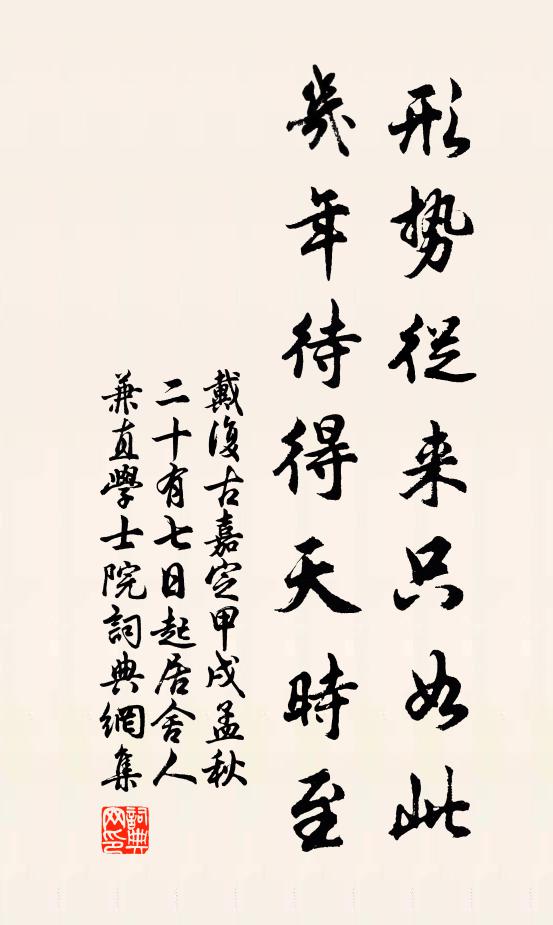 形勢從来只如此
幾年待得天時至
戴復古嘉定甲戌孟秋
二十有七日起居舍人
兼直學士院詞典網集
詞典
网印